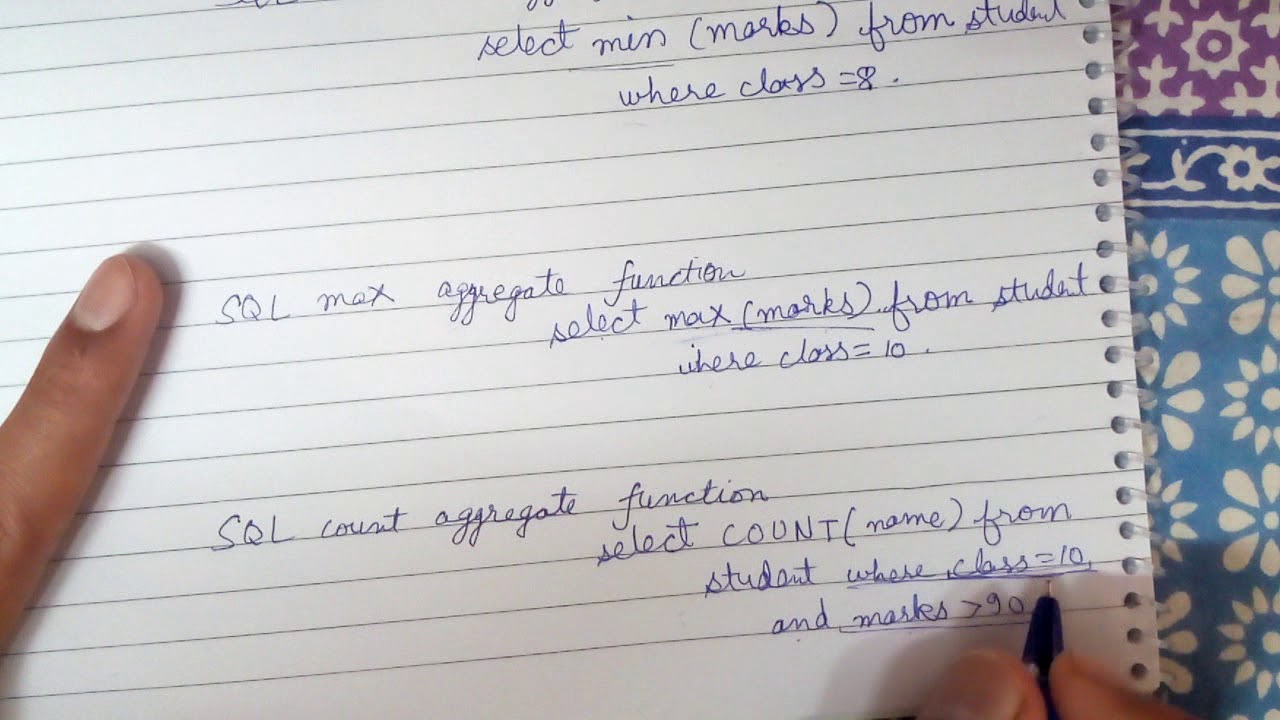 select min (marks) from student
where class =8.
SQL max aggregate function
select max (marks) from student
where class = 10.
SQL count aggregate function
select COUNT(name) from
student where class=10,
and marks >90